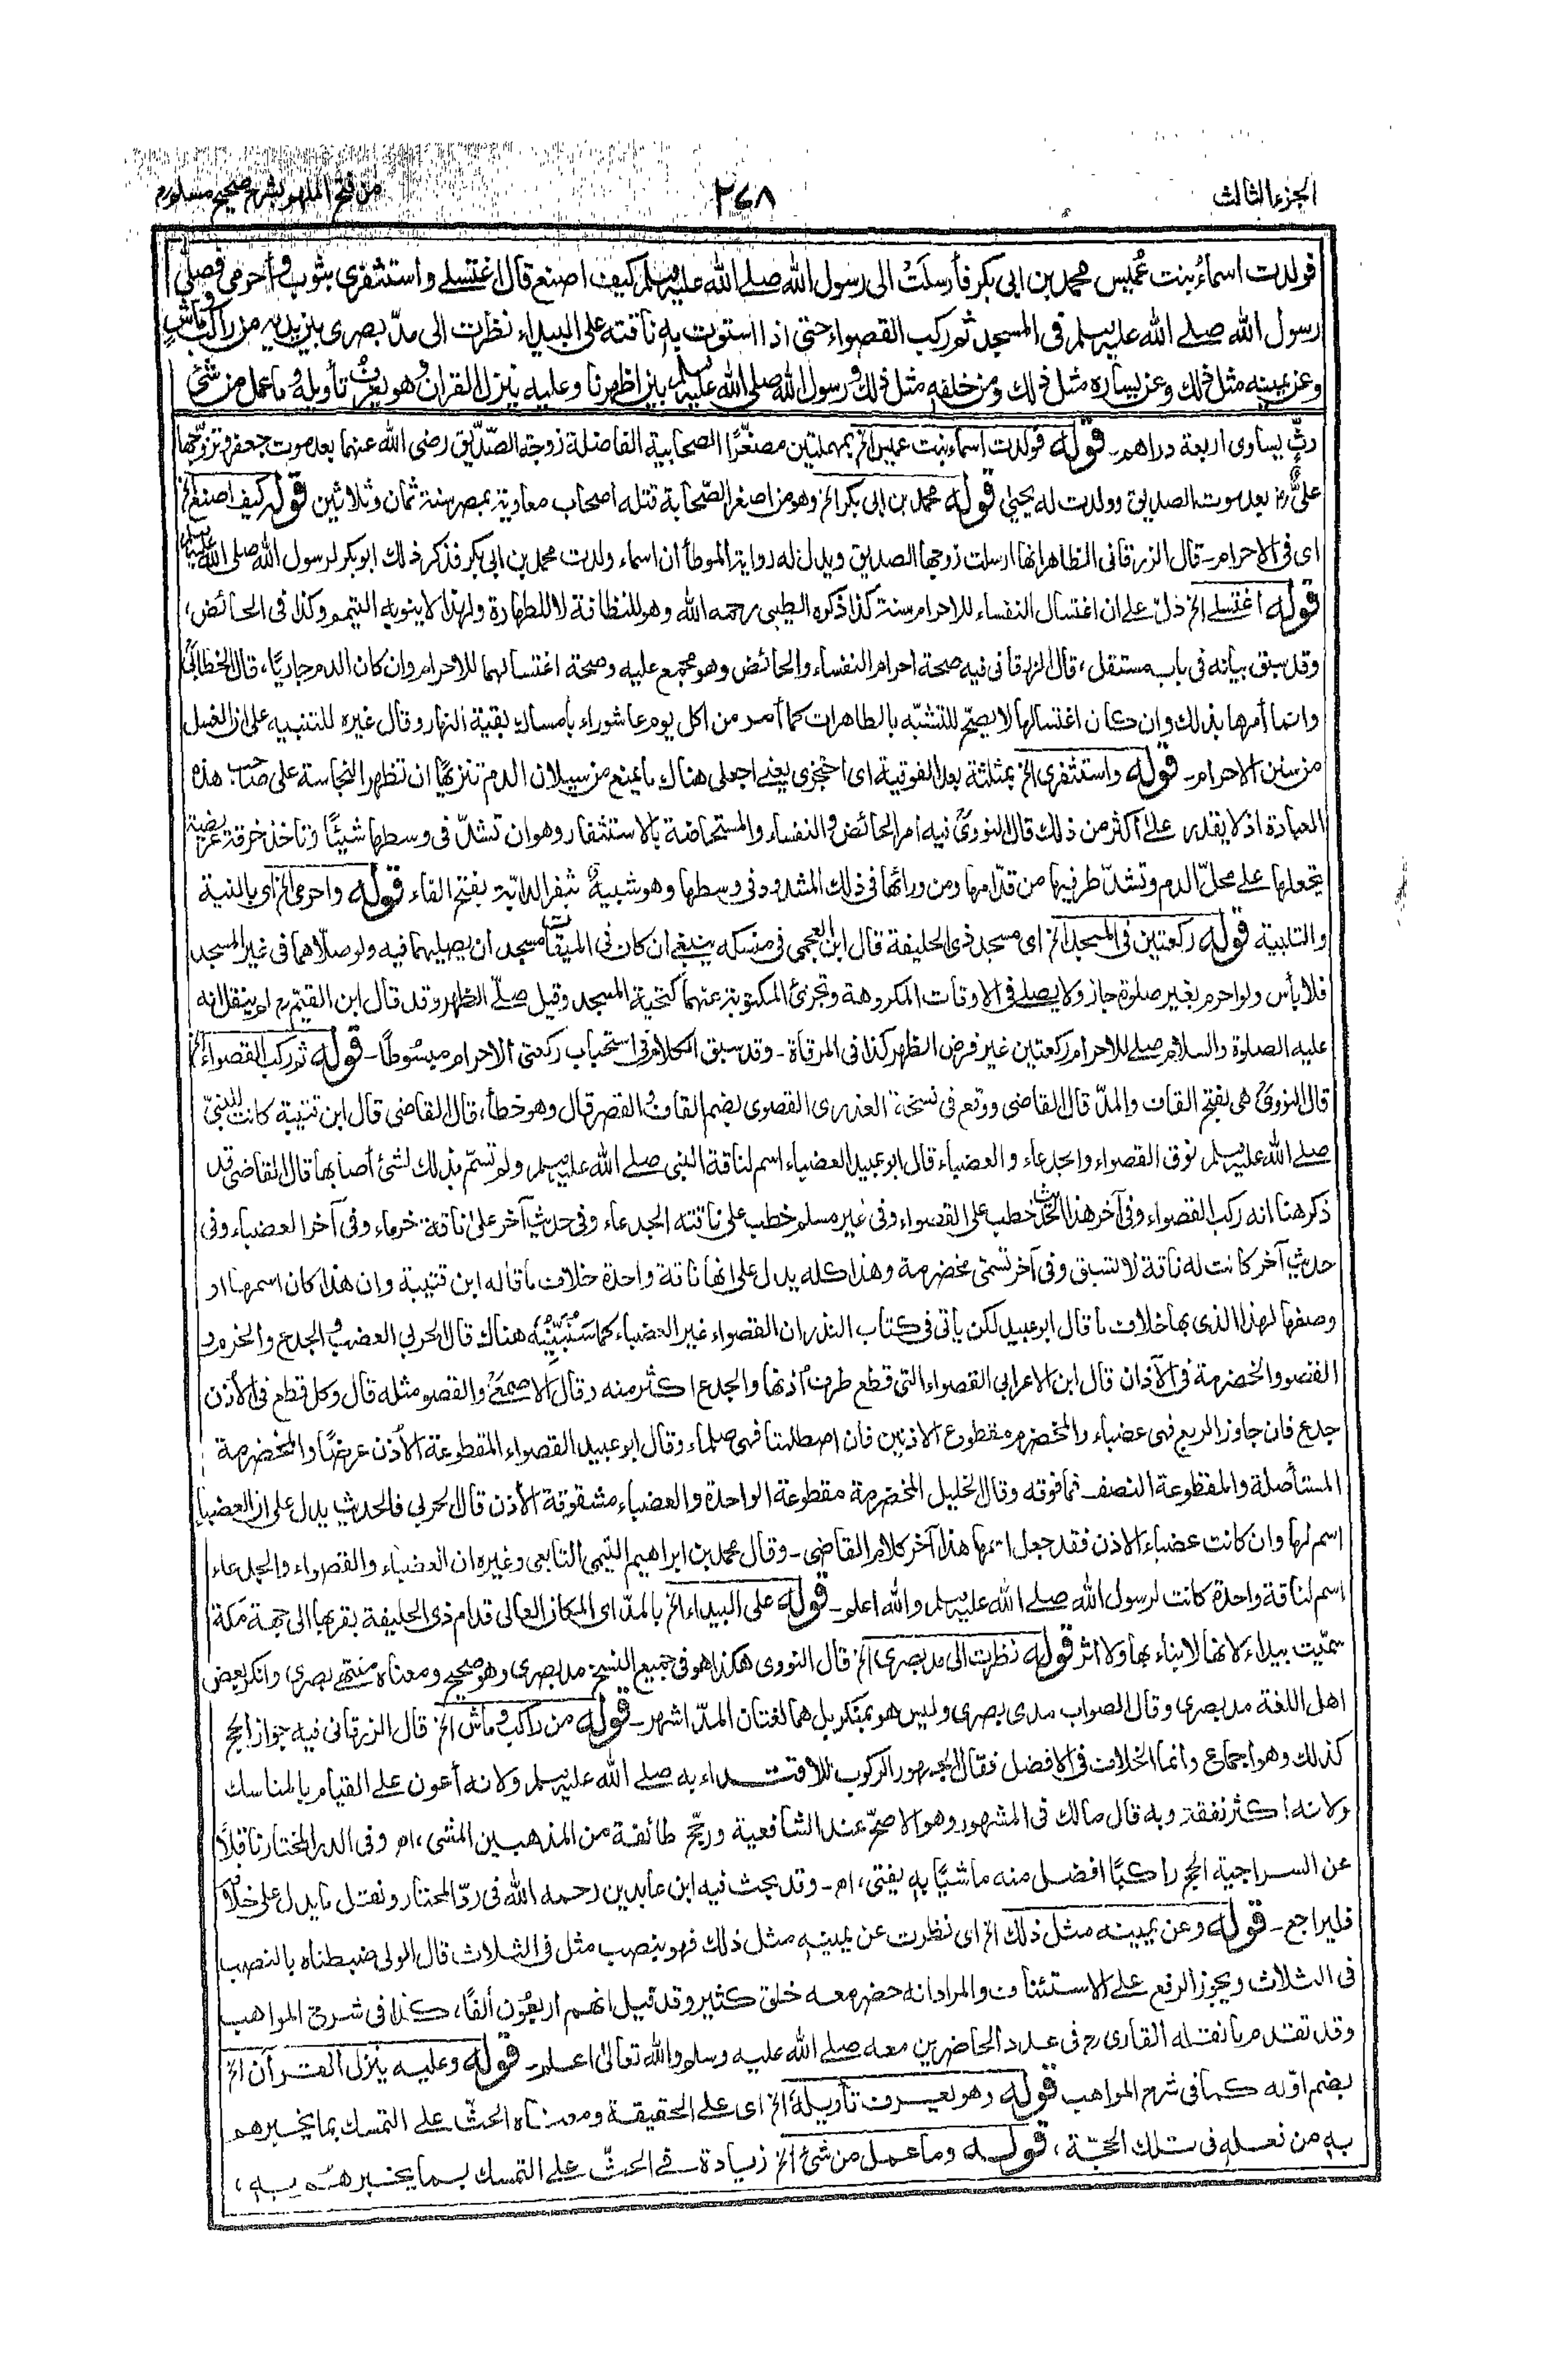 الجزء الثالث
٢٦٨
من فتح الملهم بشرح صحيح مسلم
فولدت اسماءُ بنت عُميس محمد بن ابى بكر فأرسلَتْ الى رسول الله صلے الله عليه وسلم كيف اصنع قال اغتسلے واستثفرى بثوب وأحرمى فصلى
رسول الله صلے الله عليه وسلم فى المسجد ثم ركب القصواء حتى اذا استوت به ناقته على البيداء نظرت الى مدّ بصرى بين يديه من راكب وماشٍ
وعن يمينه مثل ذلك وعن يساره مثل ذلك ومن خلفه مثل ذلك ورسول الله صلى الله عليه وسلم بين اظهرنا وعليه ينزل القرآن وهو يعرف تأويله وما عمل من شئ
رثٌّ يساوى اربعة دراهم۔ قوله فولدت اسماء بنت عميس الخ بمهملتين مصغّرًا الصحابية الفاضلة زوجة الصدّيق رضى الله عنهما بعد موت جعفر وتزوّجها
علىٌّ رض بعد موت الصديق وولدت له يحيىٰ قوله محمد بن ابى بكر الخ وهو من اصغر الصّحابة قتله اصحاب معاوية بمصر سنة ثمان وثلاثين قوله كيف اصنع الخ
اى فى الاحرام۔ قال الزرقانى الظاهر انها ارسلت زوجها الصديق ويدل له رواية الموطأ ان اسماء ولدت محمد بن ابى بكر فذكر ذلك ابو بكر لرسول الله صلى الله عليه وسلم
قوله اغتسلے الخ دلّ على ان اغتسال النفساء للاحرام سنة كذا ذكره الطيبى رحمه الله وهو للنظافة لا للطهارة ولهذا لا ينوبه التيمم وكذا فى الحائض،
وقد سبق بيانه فى باب مستقل، قال الزرقانى فيه صحة احرام النفساء والحائض وهو مجمع عليه وصحة اغتسالهما للاحرام وان كان الدم جاريًا، قال الخطابىُّ
وانما أمرها بذلك وان كان اغتسالها لا يصحّ للتشبّه بالطاهرات كما أمر من اكل يوم عاشوراء بامساك بقية النهار وقال غيره للتنبيه على ان الغسل
من سنن الاحرام۔ قوله واستثفرى الخ بمثلثة بعد الفوقية اى احتجزى يعنے اجعلى هناك ما يمنع من سيلان الدم تنزيهًا ان تظهر النجاسة على صاحب هذه
العبادة اذ لا يقدر علىٰ اكثر من ذلك قال النووىُّ فيه امر الحائض والنفساء والمستحاضة بالاستثفار وهو ان تشدّ فى وسطها شيئًا وتاخذ خرقة عريضة
تجعلها على محلّ الدم وتشدّ طرفيها من قدّامها ومن ورائها فى ذلك المشدود فى وسطها وهو شبيهٌ بثفر الدابّة بفتح الفاء قوله واحرمى الخ اى بالنية
والتلبية قوله ركعتين فى المسجد الخ اى مسجد ذى الحليفة قال ابن العجمى فى منسكه ينبغے ان كان فى الميقات مسجد ان يصليهما فيه ولو صلّاهما فى غير المسجد
فلا بأس ولو احرم بغير صلوة جاز ولا يصلے فى الاوقات المكروهة وتجزئ المكتوبة عنهما كتحية المسجد وقيل صلّى الظهر وقد قال ابن القيّم رح لم ينقل انه
عليه الصلوة والسلام صلے للاحرام ركعتين غير فرض الظهر كذا فى المرقاة۔ وقد سبق الكلام فى استحباب ركعتى الاحرام مبسُوطًا۔ قوله ثم ركب القصواء الخ
قال النووىُّ هى بفتح القاف والمدّ قال القاضى ووقع فى نسخة العذرى القصوى بضم القاف والقصر قال وهو خطأ، قال القاضى قال ابن قتيبة كانت للنبىّ
صلے الله عليه وسلم نوق القصواء والجدعاء والعضباء قال ابو عبيد العضباء اسم لناقة النبى صلے الله عليه وسلم ولم تسمّ بذلك لشئ أصابها قال القاضى قد
ذكر هنا انه ركب القصواء وفى آخر هذا الحديث خطب على القصواء وفى غير مسلم خطب على ناقته الجدعاء وفى حديث آخر علىٰ ناقة خرماء وفى آخر العضباء وفى
حديث آخر كانت له ناقة لا تسبق وفى آخر تسمّى مخضرمة وهذا كله يدل على انها ناقة واحدة خلاف ما قاله ابن قتيبة وان هذا كان اسمها او
وصفها لهذا الذى بها خلاف ما قال ابو عبيد لكن يأتى فى كتاب النذر ان القصواء غير العضباء كما سَنُبَيِّنُه هناك قال الحربى العضب والجدع والخرم و
القصو والخضرمة فى الآذان قال ابن الاعرابى القصواء التى قطع طرف أذنها والجدع اكثر منه وقال الاصمعىُّ والقصو مثله قال وكل قطع فى الأذن
جدع فان جاوز الربع فهى عضباء والمخضرم مقطوع الاذنين فان اصطلمتا فهى صلماء وقال ابو عبيد القصواء المقطوعة الأذن عرضًا والمخضرمة
المستأصلة والمقطوعة النصف فما فوقه وقال الخليل المخضرمة مقطوعة الواحدة والعضباء مشقوقة الأذن قال الحربى فالحديث يدل على ان العضباء
اسم لها وان كانت عضباء الاذن فقد جعل اسمها هذا آخر كلام القاضى۔ وقال محمد بن ابراهيم التيمى التابعى وغيره ان العضباء والقصواء والجدعاء
اسم لناقة واحدة كانت لرسول الله صلے الله عليه وسلم والله اعلم۔ قوله على البيداء الخ بالمدّ اى المكان العالى قدام ذى الحليفة بقربها الى جهة مكة
سمّيت بيداء لانها لا بناء بها ولا اثر قوله نظرت الى مد بصرى الخ قال النووى هكذا هو فى جميع النسخ مد بصرى وهو صحيح ومعناه منتهے بصرى وانكر بعض
اهل اللغة مد بصرى وقال الصواب مدى بصرى وليس هو بمنكر بل هما لغتان المدّ اشهر۔ قوله من راكب وماش الخ قال الزرقانى فيه جواز الحج
كذلك وهو اجماع وانما الخلاف فى الافضل فقال الجمهور الركوب للاقتداء به صلے الله عليه وسلم ولانه أعون على القيام بالمناسك
ولانه اكثر نفقة وبه قال مالك فى المشهور وهو الاصحّ عند الشافعية ورجّح طائفة من المذهبين المشى، اھ وفى الدر المختار ناقلًا
عن السراجية الحج راكبًا افضل منه ماشيًا به يفتى، اھ۔ وقد بحث فيه ابن عابدين رحمه الله فى ردّ المحتار ونقل ما يدل على خلافه
فليراجع۔ قوله وعن يمينه مثل ذلك الخ اى نظرت عن يمينه مثل ذلك فهو بنصب مثل فى الثلاث قال الولى ضبطناه بالنصب
فى الثلاث ويجوز الرفع على الاستئناف والمراد انه حضر معه خلق كثير وقد قيل انهم اربعُون ألفًا، كذا فى شرح المواهب
وقد تقدم ما نقله القارى رح فى عدد الحاضرين معه صلے الله عليه وسلم والله تعالىٰ اعلم۔ قوله وعليه ينزل القرآن الخ
بضم اوّله كما فى شرح المواهب قوله وهو يعرف تأويله الخ اى على الحقيقة ومعناه الحثّ على التمسك بما يخبرهم
به من فعله فى تلك الحجّة، قوله وما عمل من شئ الخ زيادة فى الحثّ على التمسك بما يخبرهم به،